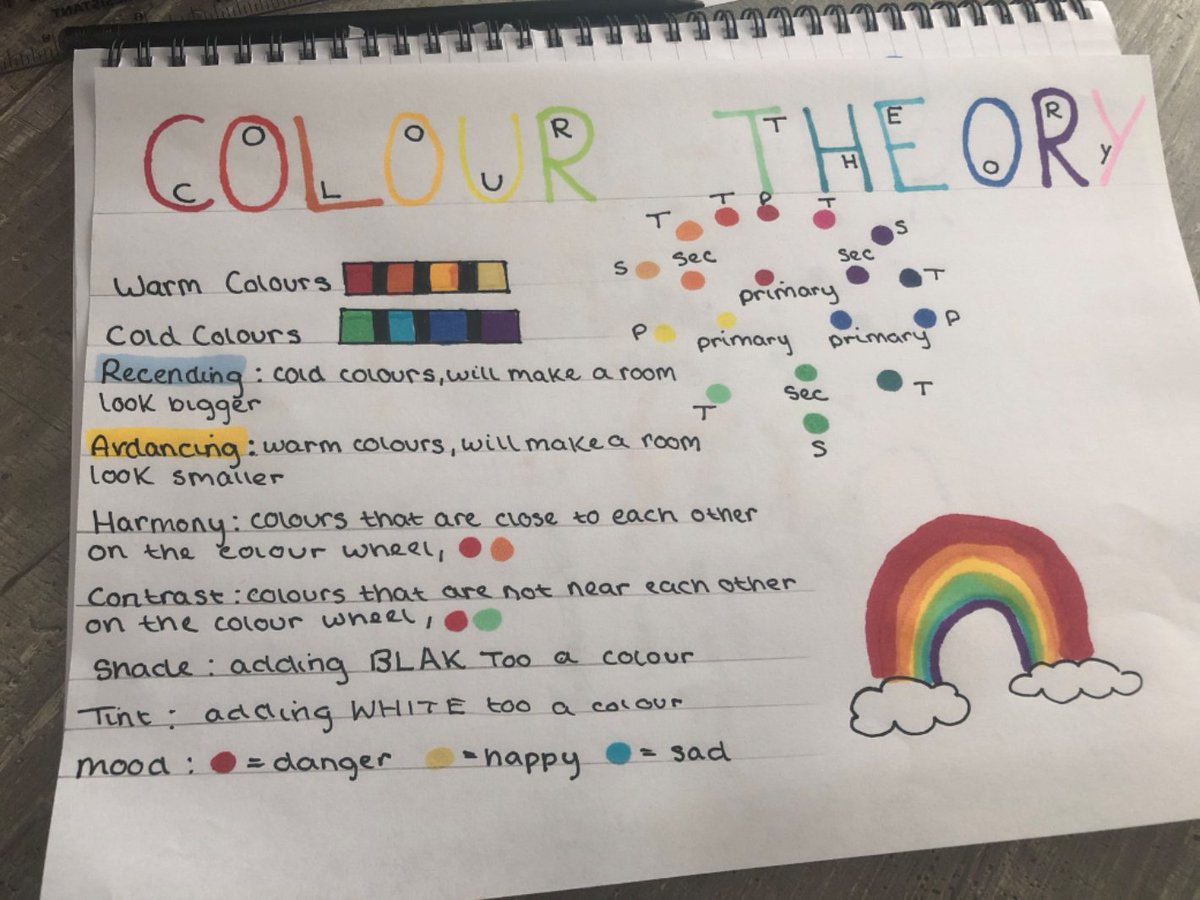 COLOUR THEORY
C O L O U R T H E O R Y
T T P T
S
T
S sec sec
primary
Warm Colours
P primary primary P
Cold Colours
Recending : cold colours, will make a room
look bigger
sec T
T
S
Ardancing : warm colours, will make a room
look smaller
Harmony : colours that are close to each other
on the colour wheel,
Contrast : colours that are not near each other
on the colour wheel,
Shade : adding BLAK Too a colour
Tint : adding WHITE too a colour
mood : = danger = happy = sad